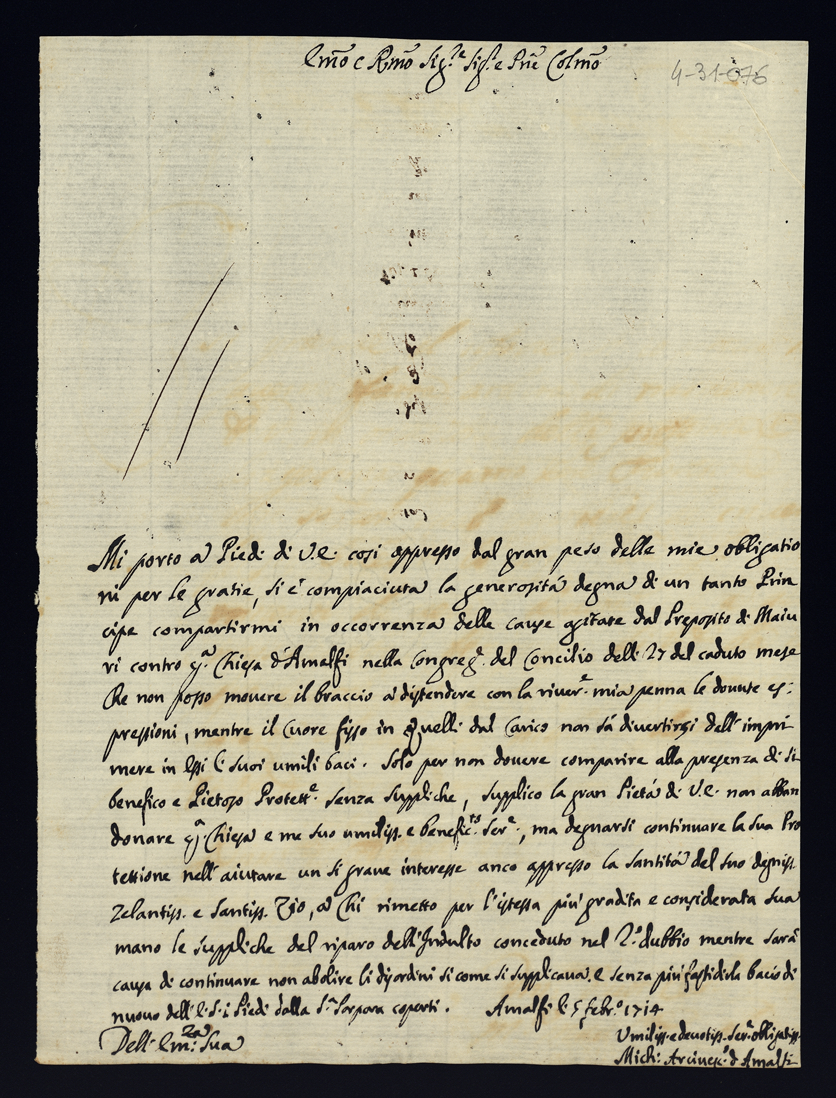 Emõ e Rmõ Sig.re Sig.r e Prñe Colmõ
4-31-076
Mi porto a' Piedi di V.E. cosi oppresso dal gran peso delle mie obligatio
ni per le gratie, si e' compiaciuta la generosità degna di un tanto Prin
cipe compartirmi in occorrenza delle cause agitate dal Preposito di Maiu
ri contro q.a Chiesa d'Amalfi nella Congreg.e del Concilio delli 27 del caduto mese
Che non posso movere il braccio a' distendere con la river.e mia penna le dovute es:
pressioni, mentre il Cuore fisso in Quelli dal Carico non sà divertirsi dell'impri
mere in Essi li suoi umili baci. Solo per non dovere comparire alla presenza di si
benefico e Pietoso Protett.e senza suppliche, supplico la gran Pietà di V.E. non abban
donare q.a Chiesa e me suo umiliss. e benefic.to Ser.e, ma degnarsi continuare la sua Pro
tettione nell'aiutare un si grave interesse anco appresso la Santità del suo degniss.
Zelantiss. e Santiss. Zio, a' Chi rimetto per l'istessa più gradita e considerata sua
mano le suppliche del riparo dell'Indulto conceduto nel 2.o dubbio mentre sarà
causa di continuare non abolire li disordini si come si supplicava. e senza più fastidirla bacio di
nuovo dell'E.S. i Piedi dalla S.a Porpora coperti. Amalfi li 5 febr.o 1714
Dell'Em:za Sua
Umiliss. e devotiss. Ser.e obligatiss.
Mich: Arcivesc.o d'Amalfi